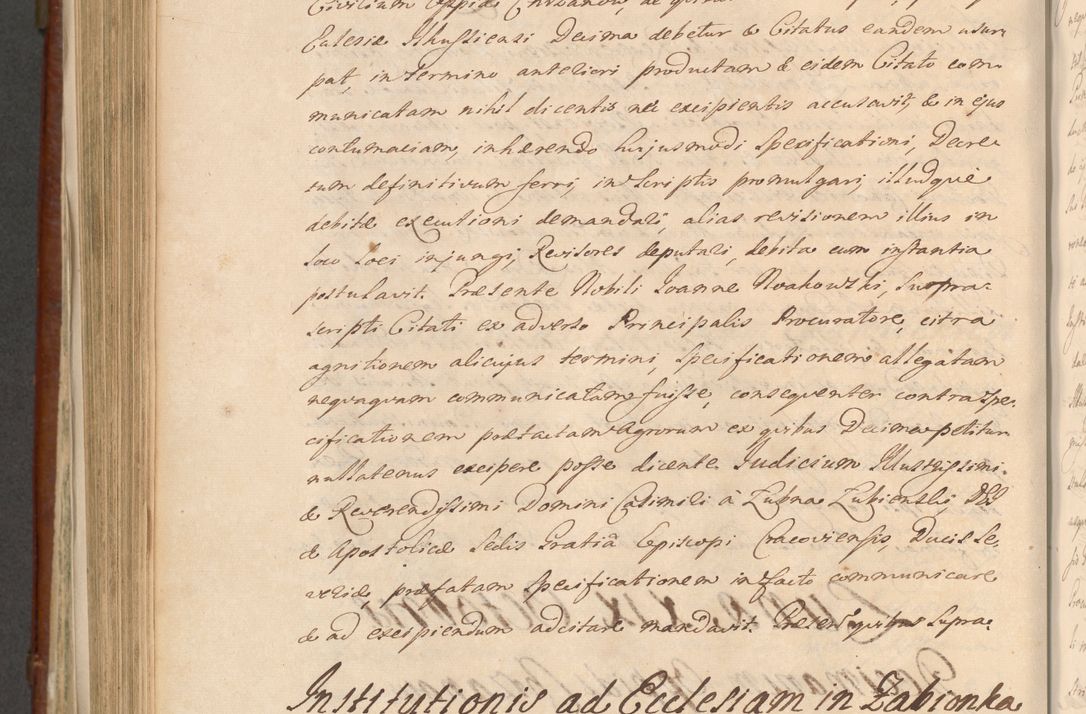 Civilium Oppidi Chrzanow, de quibus
Eclesiæ Ilkustiensi Decima debetur & Citatus eandem usur
pat, in termino anteriori productam & eidem Citato com-
municatam nihil dicentis nec excipientis accusavit, & in ejus
contumaciam, inhærendo hujusmodi Specificationi, Decre-
tum definitivum ferri, in Scriptis promulgari, illudque
debitæ executioni demandari, alias revisionem illius in
loco loci injungi, Revisores deputari, debita cum instantia
postulavit. Præsente Nobili Joanne Noakowski, Supra-
scripti Citati ex adverso Principalis Procuratore, citra
agnitionem alicujus termini, Specificationem allegatam
nequaquam communicatam fuisse, consequenter contra Spe-
cificationem prætactam Agrorum ex quibus Decima petitur
nullatenus excipere posse dicente. Judicium Illustrissimi
& Reverendissimi Domini Casimiri à Łubna Łubienski, DEI
& Apostolicæ Sedis Gratiâ Episcopi Cracoviensis, Ducis Se-
veriæ præfatam Specificationem in facto communicare
& ad excipiendum adcitare mandavit. Præsentibus Supra-
Institutionis ad Ecclesiam in Zabionka